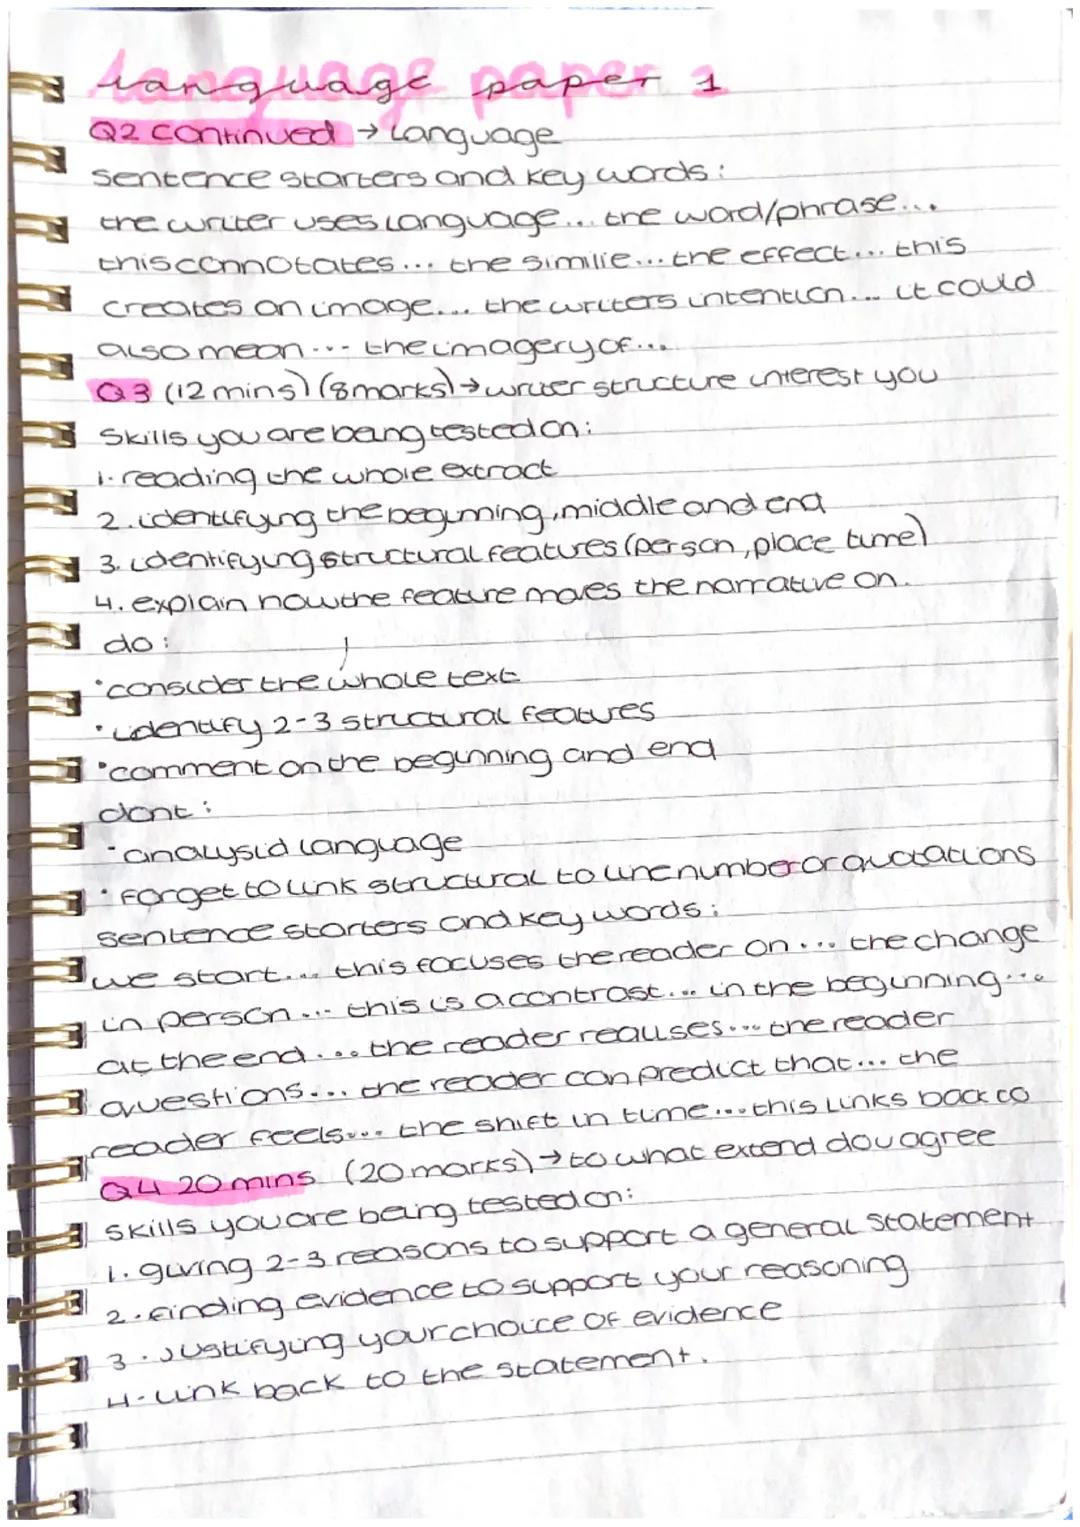 language paper 1
Q2 continued → Language
sentence starters and key words:
the writer uses language... the word/phrase...
this connotates... the similie... the effect... this
creates an image... the writers intention... it could
also mean... the imagery of...
Q3 (12 mins) (8 marks) → writer structure interest you
skills you are being tested on:
1. reading the whole extract
2. identifying the beginning, middle and end
3. identifying structural features (person, place time)
4. explain how the feature moves the narrative on.
do:
•consider the whole text
•identify 2-3 structural features
•comment on the beginning and end
dont:
•analysid language
•forget to link structural to line number or quotations
sentence starters and key words:
we start... this focuses the reader on... the change
in person... this is a contrast... in the beginning...
at the end... the reader realises... the reader
questions... the reader can predict that... the
reader feels... the shift in time... this links back to
Q4 20 mins (20 marks) → to what extend dou agree
skills you are being tested on:
1. giving 2-3 reasons to support a general statement
2. finding evidence to support your reasoning
3. Justifying your choice of evidence
4. link back to the statement.